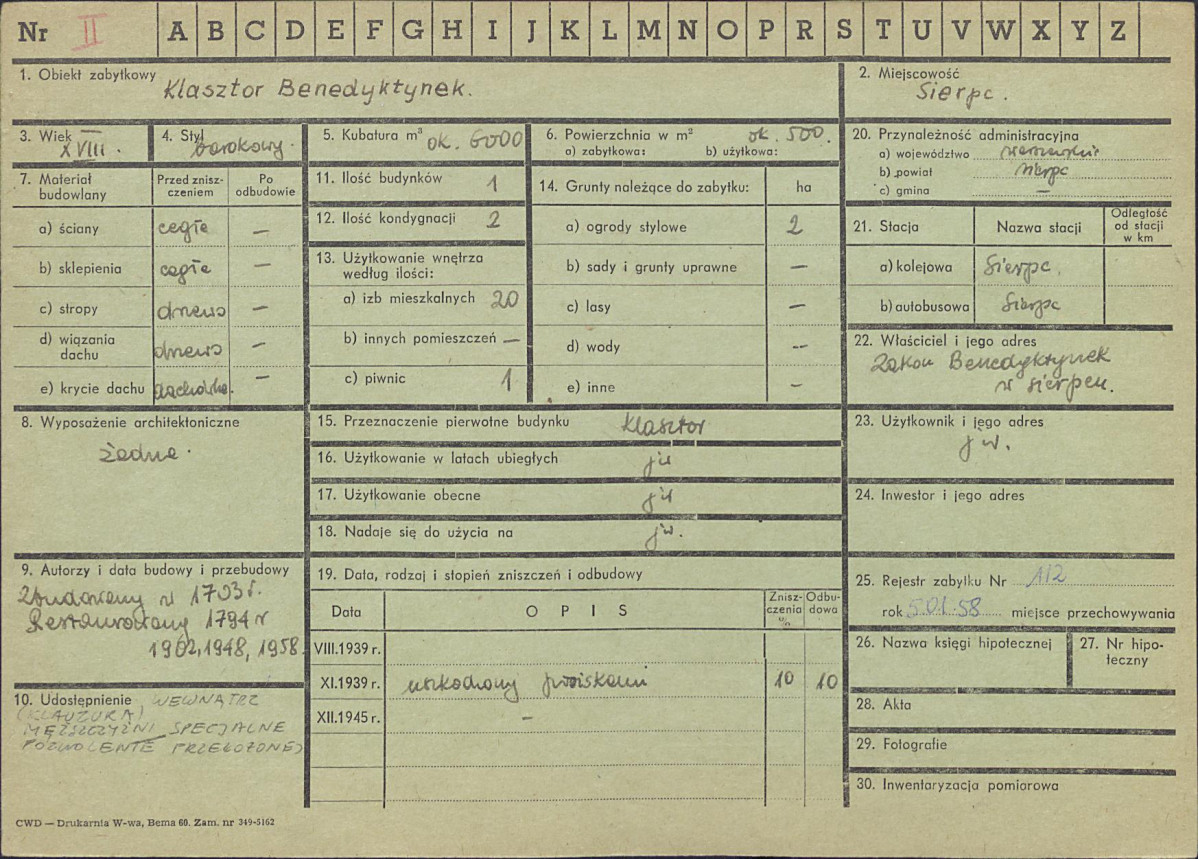 Nr II A B C D E F G H I J K L M N O P R S T U V W X Y Z
1. Obiekt zabytkowy Klasztor Benedyktynek.
2. Miejscowość Sierpc.
3. Wiek XVIII.
4. Styl barokowy.
5. Kubatura m³ ok. 6000
6. Powierzchnia w m² ok. 500.
a) zabytkowa: b) użytkowa:
20. Przynależność administracyjna
a) województwo warszawskie
b) powiat sierpc
c) gmina —
7. Materiał budowlany
Przed zniszczeniem
Po odbudowie
a) ściany cegła —
b) sklepienia cegła —
c) stropy drewno —
d) wiązania dachu drewno —
e) krycie dachu dachówka. —
11. Ilość budynków 1
12. Ilość kondygnacji 2
13. Użytkowanie wnętrza według ilości:
a) izb mieszkalnych 20
b) innych pomieszczeń —
c) piwnic 1
14. Grunty należące do zabytku: ha
a) ogrody stylowe 2
b) sady i grunty uprawne —
c) lasy —
d) wody —
e) inne —
21. Stacja Nazwa stacji Odległość od stacji w km
a) kolejowa Sierpc.
b) autobusowa Sierpc
22. Właściciel i jego adres
Zakon Benedyktynek
w Sierpcu.
8. Wyposażenie architektoniczne
żadne.
15. Przeznaczenie pierwotne budynku Klasztor
16. Użytkowanie w latach ubiegłych jw
17. Użytkowanie obecne jw
18. Nadaje się do użycia na jw.
23. Użytkownik i jego adres
jw.
24. Inwestor i jego adres
9. Autorzy i data budowy i przebudowy
Zbudowany w 1703 r.
Restaurowany 1794 r
1902, 1948, 1958.
19. Data, rodzaj i stopień zniszczeń i odbudowy
Data OPIS Zniszczenia % Odbudowa
VIII.1939 r.
XI.1939 r. uszkodzony pociskami 10 10
XII.1945 r. —
25. Rejestr zabytku Nr 112
rok 5.01.58 miejsce przechowywania
26. Nazwa księgi hipotecznej
27. Nr hipoteczny
10. Udostępnienie WEWNĄTRZ
(KLAUZURA)
MĘŻCZYŹNI SPECJALNE
POZWOLENIE PRZEŁOŻONEJ
28. Akta
29. Fotografie
30. Inwentaryzacja pomiarowa
CWD — Drukarnia W-wa, Bema 60. Zam. nr 349-5162